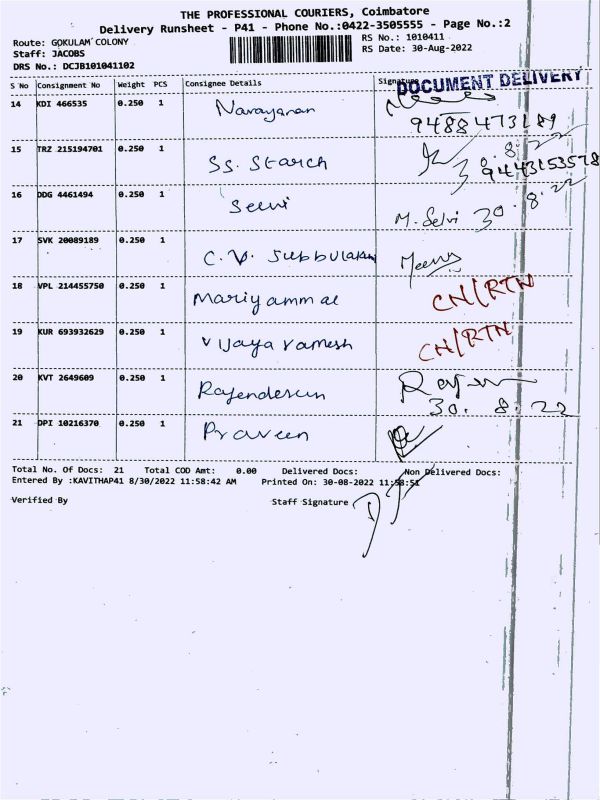 THE PROFESSIONAL COURIERS, Coimbatore
Delivery Runsheet - P41 - Phone No.:0422-3505555 - Page No.:2
Route: GOKULAM COLONY
RS No.: 1010411
Staff: JACOBS
RS Date: 30-Aug-2022
DRS No.: DCJB101041102
S No Consignment No Weight PCS Consignee Details Signature
DOCUMENT DELIVERY
14 KDI 466535 0.250 1 Narayanan
9488473189
15 TRZ 215194701 0.250 1 SS. Starch
30.8.22
9443153578
16 DDG 4461494 0.250 1 Selvi M. Selvi 30.8.22
17 SVK 20089189 0.250 1 C.V. Subbulakshmi Meena
18 VPL 214455750 0.250 1 Mariyammal CN/RTN
19 KUR 693932629 0.250 1 Vijaya ramesh CN/RTN
20 KVT 2649609 0.250 1 Rajenderan
30. 8. 22
21 DPI 10216370 0.250 1 Praveen
Total No. Of Docs: 21 Total COD Amt: 0.00 Delivered Docs: Non Delivered Docs:
Entered By :KAVITHAP41 8/30/2022 11:58:42 AM Printed On: 30-08-2022 11:58:51
Verified By Staff Signature